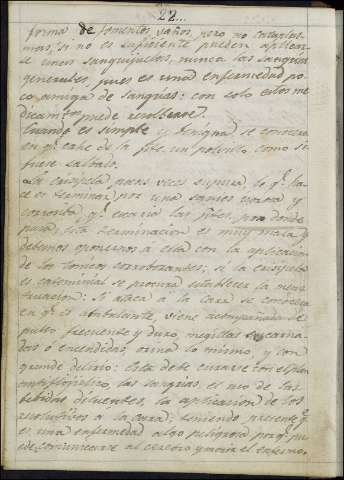 22...
forma de fomentos, vaños, pero no cataplas-
mas, si no es suficiente pueden aplicar-
se unas sanguijuelas, nunca las sangrias
generales, pues es una enfermedad po-
co amiga de sangrias: con solo estos me
dicam.tos puede resolverse.
Cuando es simple y benigna se conoce
en q.e cahe de la piel un polvito como si
fuese salbado.
La erisipela pocas veces supura, lo q.e ha-
ce es terminar por una sanies icorosa y
corrosiba, q.e escoria las partes, por donde
pasa, esta terminacion es muy mala y
debemos oponernos á esta con la aplicacion
de los tonicos corroborantes; si la erisipela
es catamenial se procura establecer la mens-
truacion: Si ataca á la cara se conoce
en q.e es ambulante, viene acompañada de
pulso frecuente y duro, megillas encarna-
das ó encendidas, orina lo mismo, y con
grande delirio: esta debe curarse con el plan
antiflogistico, las sangrias, el uso de las
bebidas diluentes, la aplicacion de los
resolutibos á la cara; teniendo presente q.e
es una enfermedad algo peligrosa porq.e pu-
ede comunicarse al celebro y morir el enfermo.